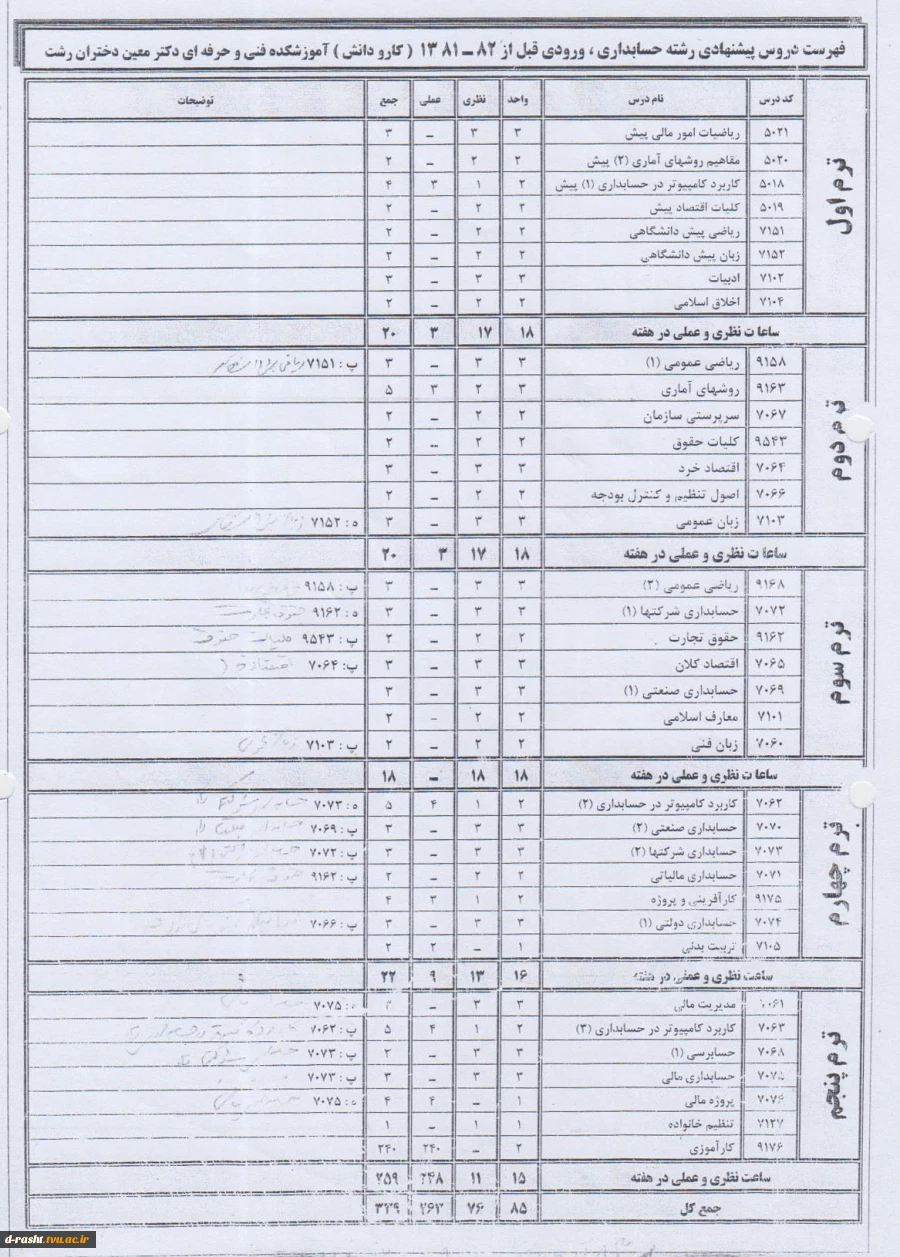 فهرست دروس پیشنهادی رشته حسابداری ، ورودی قبل از ۸۲ – ۱۳۸۱ ( کارو دانش ) آموزشکده فنی و حرفه ای دکتر معین دختران رشت
کد درس نام درس واحد نظری عملی جمع توضیحات
ترم اول
۵۰۲۱ ریاضیات امور مالی پیش ۳ ۳ – ۳
۵۰۲۰ مقاهیم روشهای آماری (۲) پیش ۲ ۲ – ۲
۵۰۱۸ کاربرد کامپیوتر در حسابداری (۱) پیش ۲ ۱ ۳ ۴
۵۰۱۹ کلیات اقتصاد پیش ۲ ۲ – ۲
۷۱۵۱ ریاضی پیش دانشگاهی ۲ ۲ – ۲
۷۱۵۲ زبان پیش دانشگاهی ۲ ۲ – ۲
۷۱۰۲ ادبیات ۳ ۳ – ۳
۷۱۰۴ اخلاق اسلامی ۲ ۲ – ۲
ساعات نظری و عملی در هفته ۱۸ ۱۷ ۳ ۲۰
ترم دوم
۹۱۵۸ ریاضی عمومی (۱) ۳ ۳ – ۳ پ : ۷۱۵۱
۹۱۶۳ روشهای آماری ۳ ۲ ۳ ۵
۷۰۶۷ سرپرستی سازمان ۲ ۲ – ۲
۹۵۴۳ کلیات حقوق ۲ ۲ – ۲
۷۰۶۴ اقتصاد خرد ۳ ۳ – ۳
۷۰۶۶ اصول تنظیم و کنترل بودجه ۲ ۲ – ۲
۷۱۰۳ زبان عمومی ۳ ۳ – ۳ ه : ۷۱۵۲
ساعات نظری و عملی در هفته ۱۸ ۱۷ ۳ ۲۰
ترم سوم
۹۱۶۸ ریاضی عمومی (۲) ۳ ۳ – ۳ پ : ۹۱۵۸
۷۰۷۲ حسابداری شرکتها (۱) ۳ ۳ – ۳ ه : ۹۱۶۲ حقوق تجارت
۹۱۶۲ حقوق تجارت ۲ ۲ – ۲ پ : ۹۵۴۳ کلیات حقوق
۷۰۶۵ اقتصاد کلان ۳ ۳ – ۳ پ: ۷۰۶۴
۷۰۶۹ حسابداری صنعتی (۱) ۳ ۳ – ۳
۷۱۰۱ معارف اسلامی ۲ ۲ – ۲
۷۰۶۰ زبان فنی ۲ ۲ – ۲ پ : ۷۱۰۳
ساعات نظری و عملی در هفته ۱۸ ۱۸ – ۱۸
ترم چهارم
۷۰۶۲ کاربرد کامپیوتر در حسابداری (۲) ۲ ۱ ۴ ۵ ه : ۷۰۷۳
۷۰۷۰ حسابداری صنعتی (۲) ۳ ۳ – ۳ پ : ۷۰۶۹
۷۰۷۳ حسابداری شرکتها (۲) ۳ ۳ – ۳ پ : ۷۰۷۲
۷۰۷۱ حسابداری مالیاتی ۲ ۲ – ۲ پ : ۹۱۶۲
۹۱۷۵ کارآفرینی و پروژه ۲ ۱ ۳ ۴
۷۰۷۴ حسابداری دولتی (۱) ۳ ۳ – ۳ پ : ۷۰۶۶
۷۱۰۵ تربیت بدنی ۱ – ۲ ۲
ساعت نظری و عملی در هفته ۱۶ ۱۳ ۹ ۲۲
ترم پنجم
مدیریت مالی ۳ ۳ – ۳ ه : ۷۰۷۵
۷۰۶۳ کاربرد کامپیوتر در حسابداری (۳) ۲ ۱ ۴ ۵ پ : ۷۰۶۲
۷۰۶۸ حسابرسی (۱) ۳ ۳ – ۳ پ : ۷۰۷۳
۷۰۷۵ حسابداری مالی ۳ ۳ – ۳ پ : ۷۰۷۳
۷۰۷۶ پروژه مالی ۱ – ۴ ۴ ه : ۷۰۷۵
۷۱۲۷ تنظیم خانواده ۱ ۱ – ۱
۹۱۷۶ کارآموزی ۲ – ۲۴۰ ۲۴۰
ساعت نظری و عملی در هفته ۱۵ ۱۱ ۲۴۸ ۲۵۹
جمع کل ۸۵ ۷۶ ۲۶۳ ۳۳۹
d-rasht.tvu.ac.ir